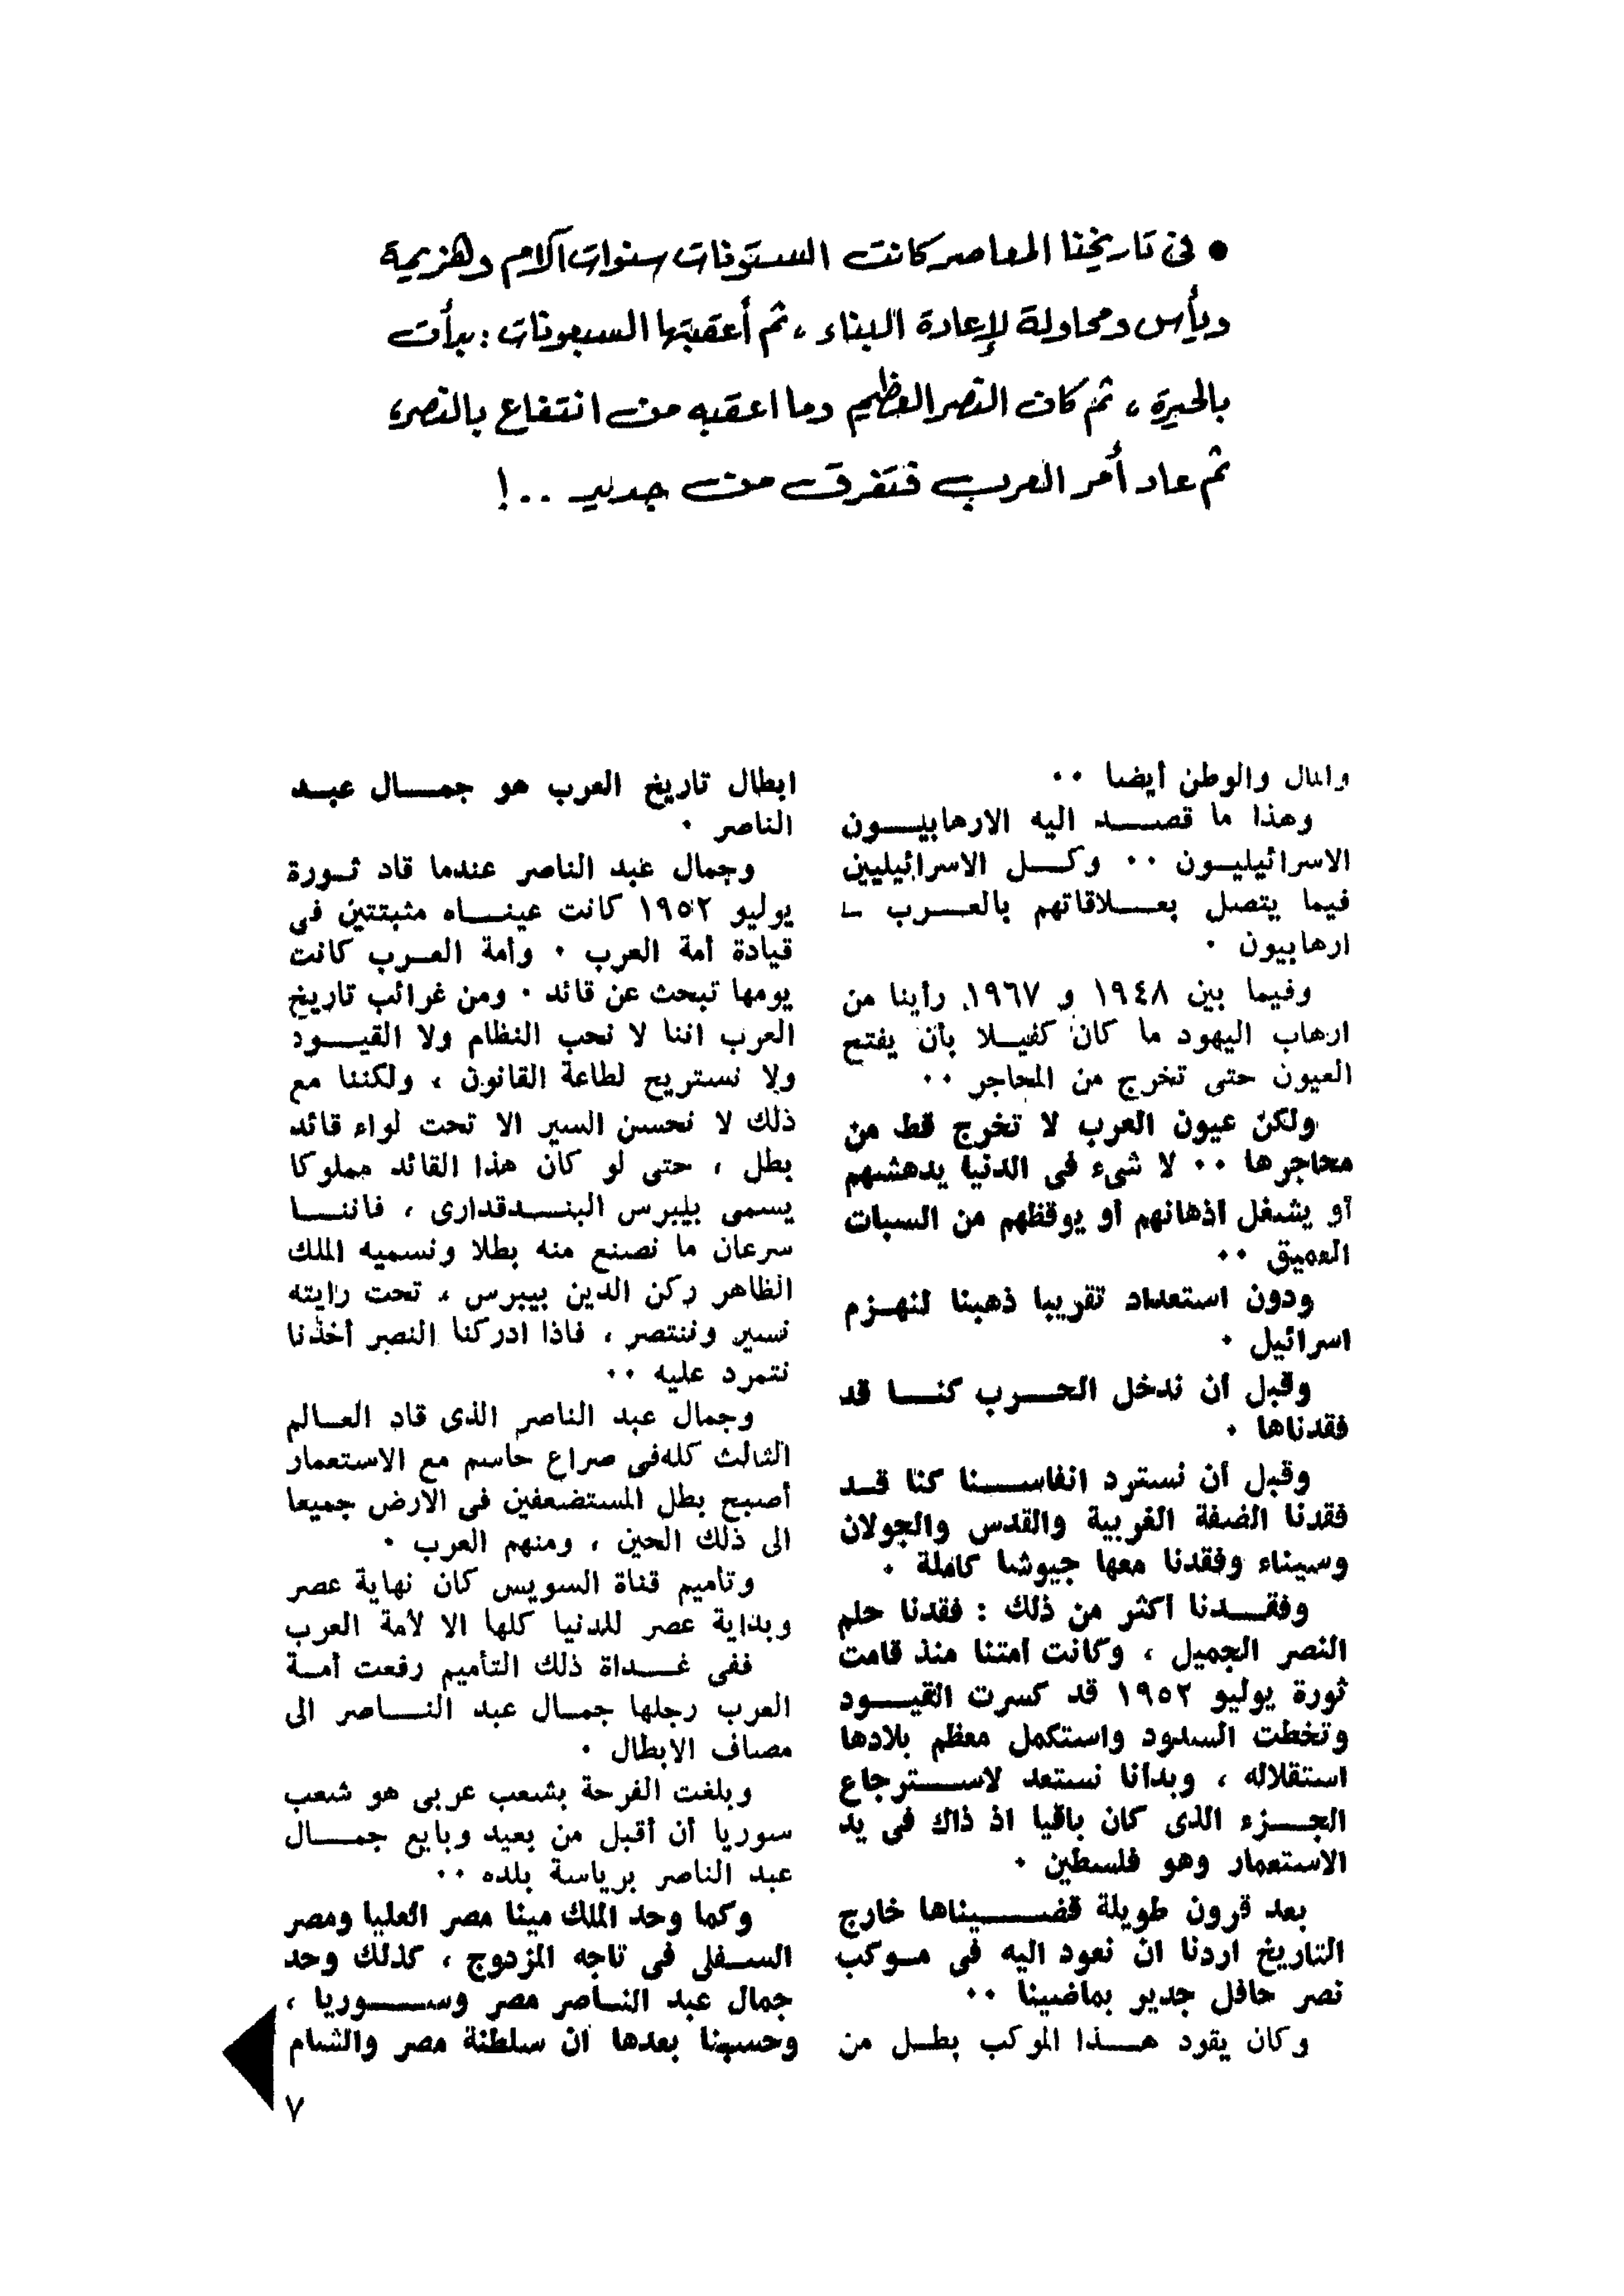 ● فى تاريخنا المعاصر كانت الستونات سنوات آلام وهزيمة
ويأس ومحاولة لإعادة البناء ، ثم أعقبتها السبعونات : بدأت
بالحيرة ، ثم كان النصر العظيم وما اعقبه من انتفاع بالنصر ،
ثم عاد أمر العرب فتفرق من جديد ..!
والمال والوطن أيضا ..
وهذا ما قصد اليه الارهابيون
الاسرائيليون .. وكل الاسرائيليين
فيما يتصل بعلاقاتهم بالعرب –
ارهابيون .
وفيما بين ١٩٤٨ و ١٩٦٧ رأينا من
ارهاب اليهود ما كان كفيلا بأن يفتح
العيون حتى تخرج من المحاجر ..
ولكن عيون العرب لا تخرج قط من
محاجرها .. لا شىء فى الدنيا يدهشهم
أو يشغل أذهانهم أو يوقظهم من السبات
العميق ..
ودون استعداد تقريبا ذهبنا لنهزم
اسرائيل .
وقبل أن ندخل الحرب كنا قد
فقدناها .
وقبل أن نسترد انفاسنا كنا قد
فقدنا الضفة الغربية والقدس والجولان
وسيناء وفقدنا معها جيوشا كاملة .
وفقدنا أكثر من ذلك : فقدنا حلم
النصر الجميل ، وكانت امتنا منذ قامت
ثورة يوليو ١٩٥٢ قد كسرت القيود
وتخطت السدود واستكمل معظم بلادها
استقلاله ، وبدأنا نستعد لاسترجاع
الجزء الذى كان باقيا اذ ذاك فى يد
الاستعمار وهو فلسطين .
بعد قرون طويلة قضيناها خارج
التاريخ اردنا ان نعود اليه فى موكب
نصر حافل جدير بماضينا ..
وكان يقود هذا الموكب بطل من
ابطال تاريخ العرب هو جمال عبد
الناصر .
وجمال عبد الناصر عندما قاد ثورة
يوليو ١٩٥٢ كانت عيناه مثبتتين فى
قيادة أمة العرب . وأمة العرب كانت
يومها تبحث عن قائد . ومن غرائب تاريخ
العرب اننا لا نحب النظام ولا القيود
ولا نستريح لطاعة القانون ، ولكننا مع
ذلك لا نحسن السير الا تحت لواء قائد
بطل ، حتى لو كان هذا القائد مملوكا
يسمى بيبرس البندقدارى ، فاننا
سرعان ما نصنع منه بطلا ونسميه الملك
الظاهر ركن الدين بيبرس ، تحت رايته
نسير وننتصر ، فاذا ادركنا النصر أخذنا
نتمرد عليه ..
وجمال عبد الناصر الذى قاد العالم
الثالث كله فى صراع حاسم مع الاستعمار
أصبح بطل المستضعفين فى الارض جميعا
الى ذلك الحين ، ومنهم العرب .
وتأميم قناة السويس كان نهاية عصر
وبداية عصر للدنيا كلها الا لأمة العرب
ففى غداة ذلك التأميم رفعت أمة
العرب رجلها جمال عبد الناصر الى
مصاف الابطال .
وبلغت الفرحة بشعب عربى هو شعب
سوريا أن أقبل من بعيد وبايع جمال
عبد الناصر برياسة بلده ..
وكما وحد الملك مينا مصر العليا ومصر
السفلى فى تاجه المزدوج ، كذلك وحد
جمال عبد الناصر مصر وسوريا ،
وحسبنا بعدها أن سلطنة مصر والشام
٧